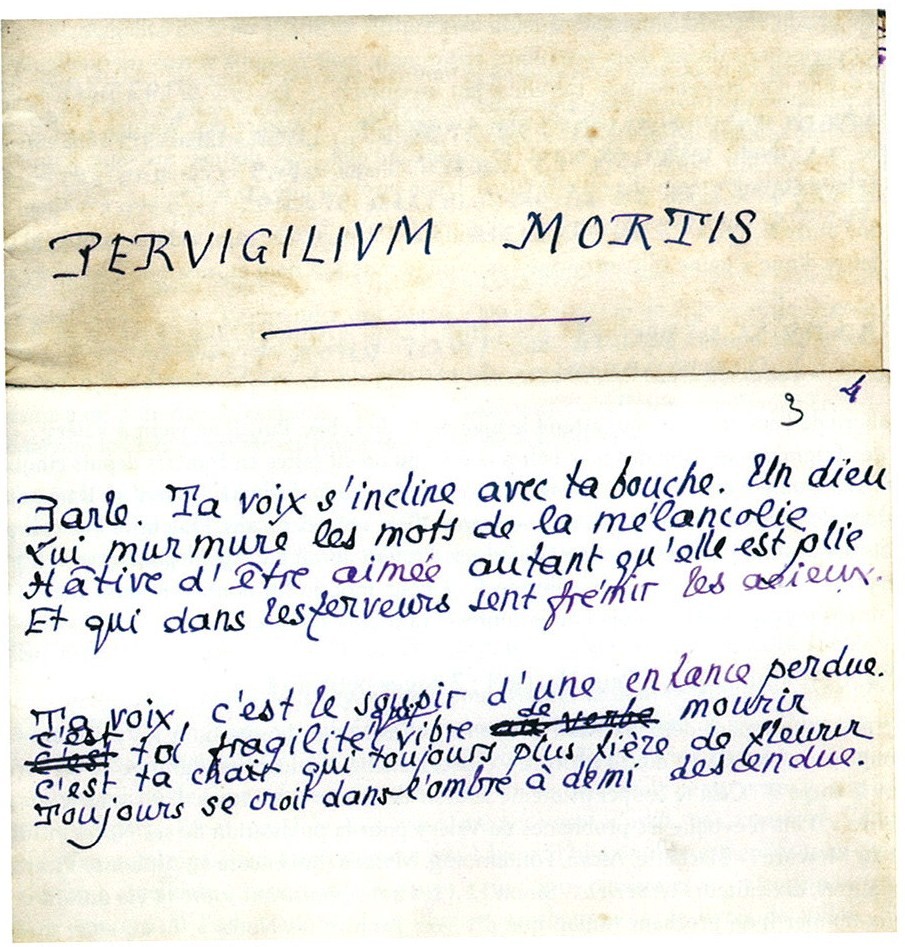 PERVIGILIVM MORTIS
3 4
Parle. Ta voix s'incline avec ta bouche. Un dieu
Lui murmure les mots de la mélancolie
Hâtive d'être aimée autant qu'elle est plie
Et qui dans les ferveurs sent frémir les adieux.
Ta voix, c'est le soupir d'une enfance perdue.
c'est ta fragilité qui vibre de mourir
c'est ta chair qui toujours plus fière de fleurir
Toujours se croit dans l'ombre à demi descendue.